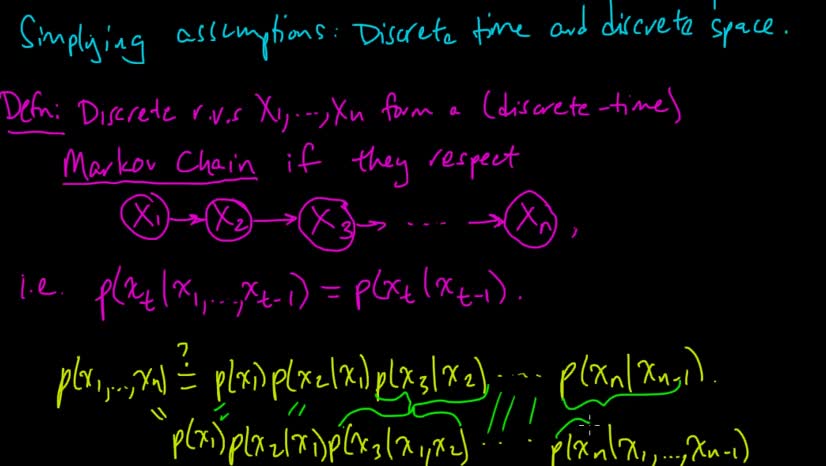 Simplying assumptions: Discrete time and discrete space.
Defn: Discrete r.v.s X₁,...,Xn form a (discrete-time)
Markov Chain if they respect
X₁ → X₂ → X₃ → .... → Xn,
i.e. p(xₜ|x₁,...,xₜ₋₁) = p(xₜ|xₜ₋₁).
p(x₁,...,xn) ?= p(x₁)p(x₂|x₁)p(x₃|x₂) .... p(xn|xn-1).
" p(x₁)p(x₂|x₁)p(x₃|x₁,x₂) ... p(xn|x₁,...,xn-1)